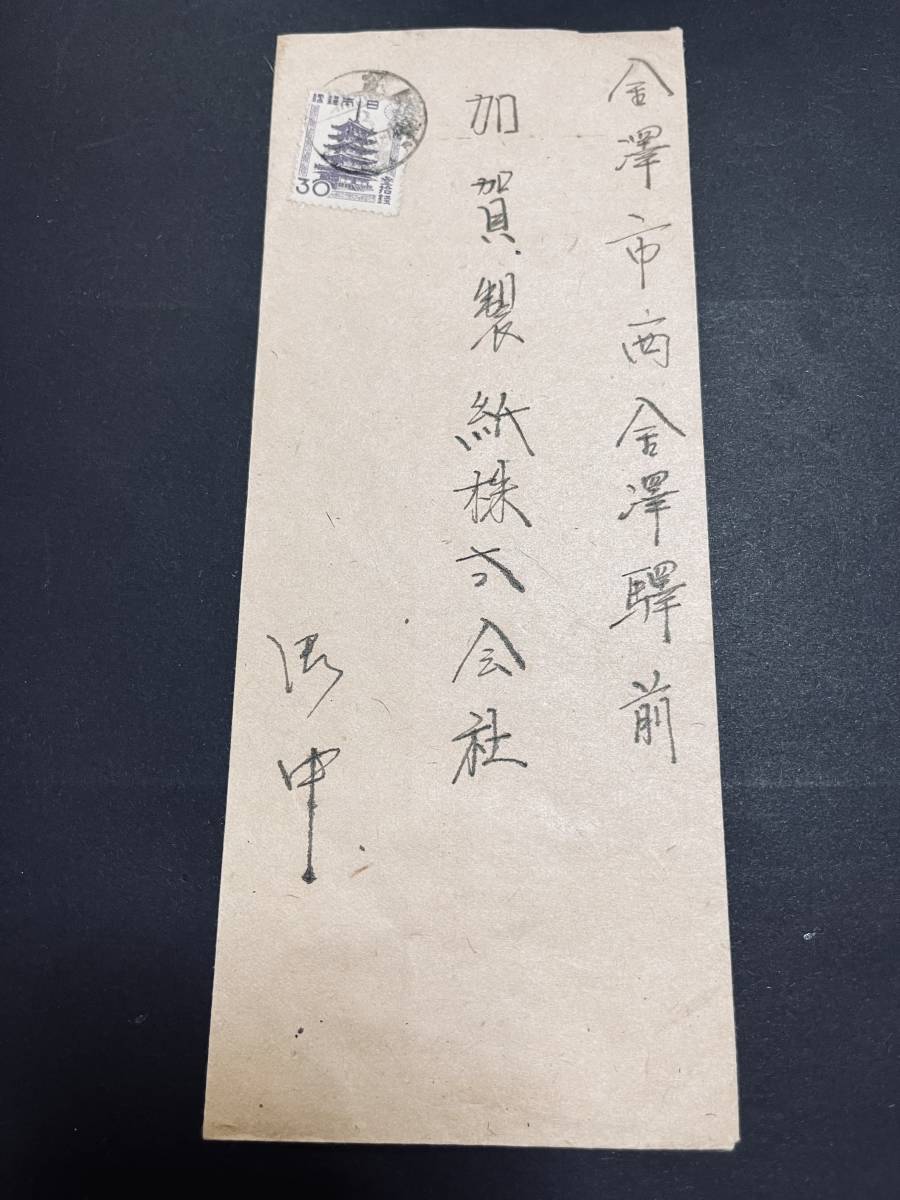 金澤市西金澤驛前
加賀製紙株式会社
御中
日本郵便
30
参拾銭